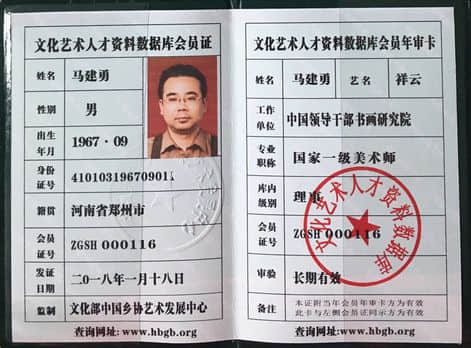 文化艺术人才资料数据库会员证
姓名 马建勇
性别 男
出生年月 1967·09
身份证号 41010319670901
籍贯 河南省郑州市
会员证号 ZGSH 000116
发证日期 二〇一八年一月十八日
监制 文化部中国乡协艺术发展中心
查询网址:www.hbgb.org
文化艺术人才资料数据库会员年审卡
姓名 马建勇 艺名 祥云
工作单位 中国领导干部书画研究院
专业职称 国家一级美术师
库内级别 理事
会员证号 ZGSH 000116
审验 长期有效
备注 本证附当年会员年审卡方为有效
此卡与左侧会员证同示方为有效
查询网址:www.hbgb.org
文化艺术人才资料数据库